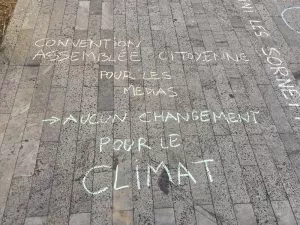 CONVENTION
ASSEMBLÉE CITOYENNE
POUR LES
MÉDIAS
→ AUCUN CHANGEMENT
POUR LE
CLIMAT
LES SORNETT